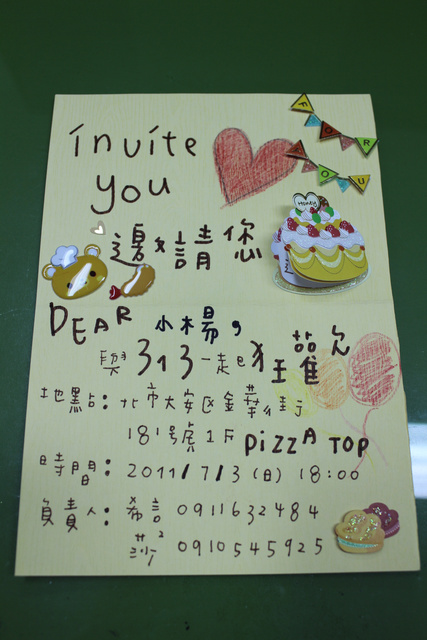 invite
you
FOR
YOU
Honey
邀請您
DEAR 小楊,
與 313 一起 狂歡
地點: 北市大安區金華街
181號1F PiZZA TOP
時間: 2011/7/3 (日) 18:00
負責人: 希言 0911632484
莎² 0910545925